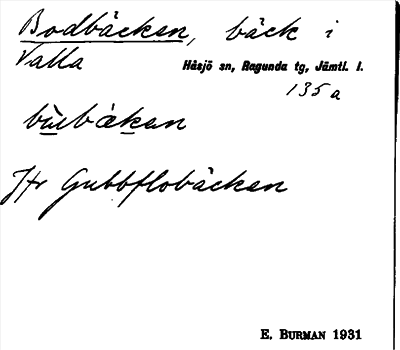 Bodbäcken, bäck i
Valla Håsjö sn, Ragunda tg, Jämtl. l.
135a
Jfr Gubbflobäcken
E. BURMAN 1931